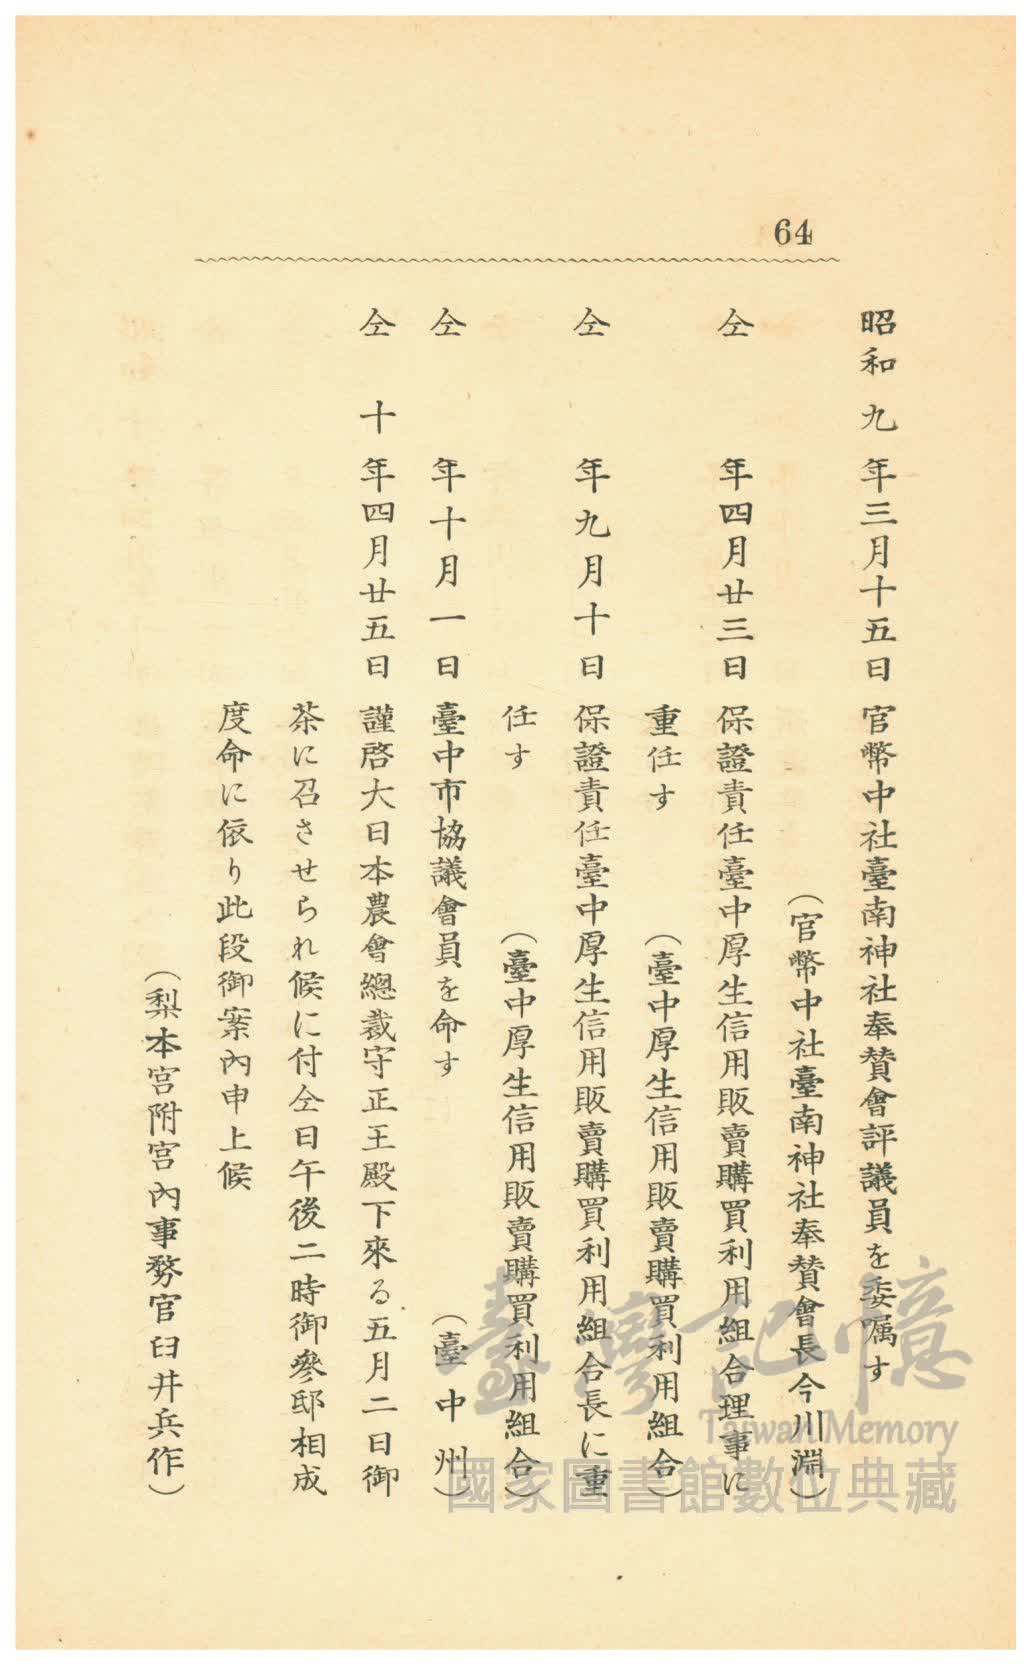 64
昭和九年三月十五日 官幣中社臺南神社奉贊會評議員を委嘱す
（官幣中社臺南神社奉贊會長今川淵）
仝 年四月廿三日 保證責任臺中厚生信用販賣購買利用組合理事に
重任す （臺中厚生信用販賣購買利用組合）
仝 年九月十日 保證責任臺中厚生信用販賣購買利用組合長に重
任す （臺中厚生信用販賣購買利用組合）
仝 年十月一日 臺中市協議會員を命す （臺中州）
仝 十年四月廿五日 謹啓大日本農會總裁守正王殿下來る五月二日御
茶に召させられ候に付仝日午後二時御參邸相成
度命に依り此段御案內申上候
（梨本宮附宮內事務官臼井兵作）
臺灣記憶
Taiwan Memory
國家圖書館數位典藏